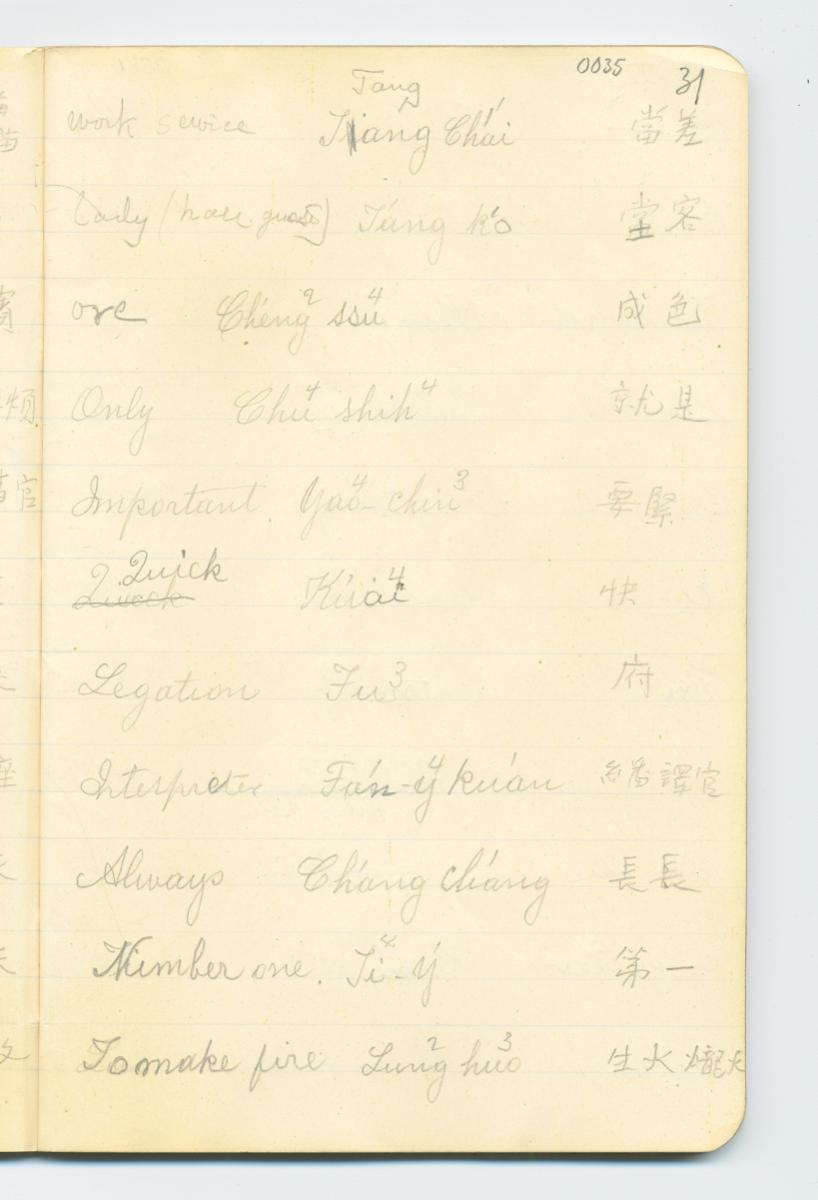 0035 31
Tang
work service Tiang Ch'ai 當差
Lady (house guest) T'ang k'o 堂客
ore Ch'eng² ssu⁴ 成色
Only Chu⁴ shih⁴ 就是
Important Yao⁴-chin³ 要緊
Quick
K'uai⁴ 快
Legation Fu³ 府
Interpreter Fan-y⁴ kuan 繙譯官
Always Ch'ang ch'ang 長長
Number one. Ti⁴-y 第一
To make fire Lung² huo³ 生火 爖火